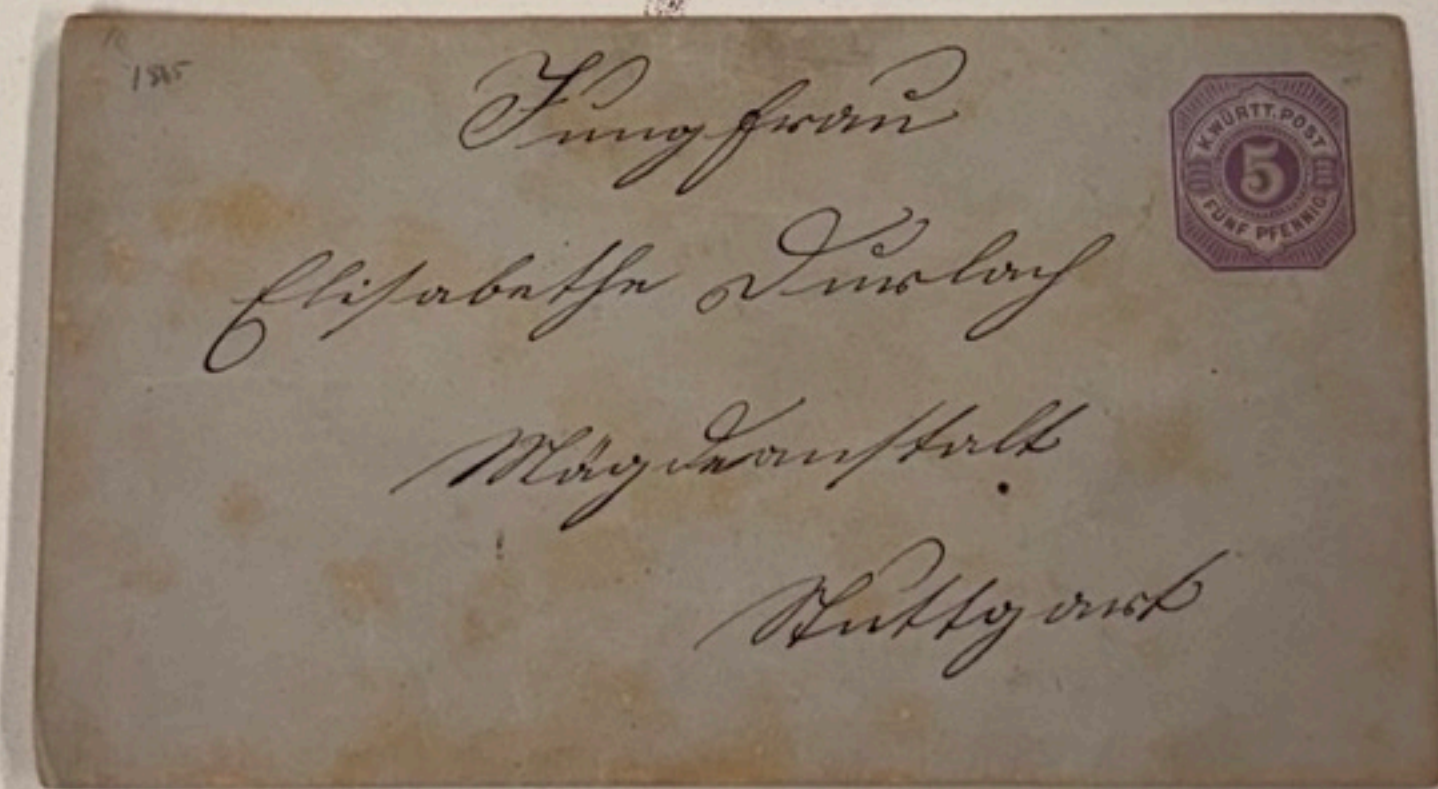 Jungfrau
Elisabethe Durlach
Mägdeanstalt
Stuttgart
K.WÜRTT.POST
5
FÜNF PFENNIG